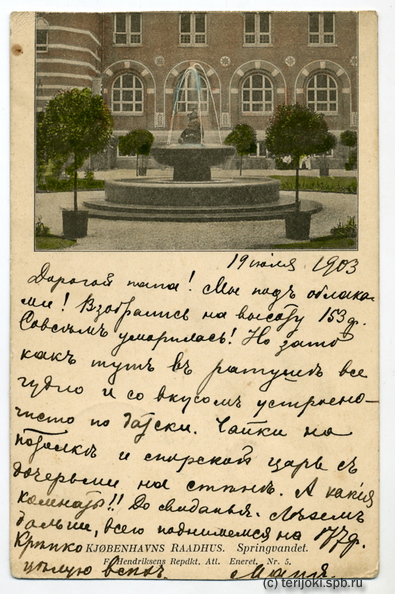 19 июля 1903
Дорогой папа! Мы подъ облака-
ми! Взобрались на высоту 153 ф.
Совсѣмъ уморилась! Но зато
какъ тутъ въ ратушѣ все
чудно и со вкусомъ устроено-
чисто по датски. Чайки на
потолкѣ и морской царь съ
дочерьми на стѣнѣ. А какія
комнаты!! До свиданья. Лѣземъ
дальше, всего поднимемся на 177 ф.
Крѣпко KJØBENHAVNS RAADHUS. Springvandet.
F. Hendriksens Repdkt. Att. Eneret. Nr. 5.
цѣлую всѣхъ.
(c) terijoki.spb.ru